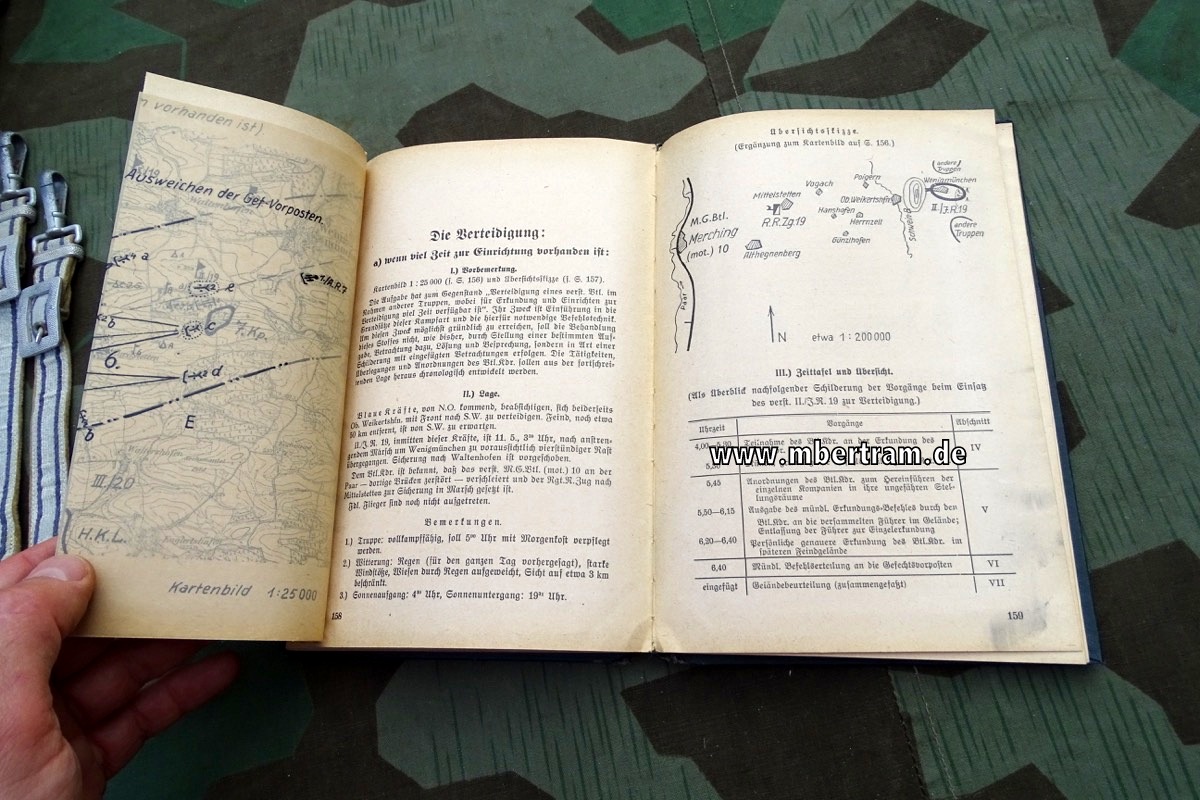 n vorhanden ist).
Ausweichen der Gef. Vorposten.
a
e
b
c
7. Kp.
6.
d
b
E
III/20
H.K.L.
Kartenbild 1:25000
Die Verteidigung:
a) wenn viel Zeit zur Einrichtung vorhanden ist:
I.) Vorbemerkung.
Kartenbild 1 : 25 000 (s. S. 156) und Übersichtsskizze (s. S. 157).
Die Aufgabe hat zum Gegenstand „Verteidigung eines verst. Btl. im
Rahmen anderer Truppen, wobei für Erkundung und Einrichten zur
Verteidigung viel Zeit verfügbar ist“. Ihr Zweck ist Einführung in die
Grundsätze dieser Kampfart und die hierfür notwendige Befehlstechnik.
Um diesen Zweck möglichst gründlich zu erreichen, soll die Behandlung
dieses Stoffes nicht, wie bisher, durch Stellung einer bestimmten Auf-
gabe, Betrachtung dazu, Lösung und Besprechung, sondern in Art einer
Schilderung mit eingefügten Betrachtungen erfolgen. Die Tätigkeiten,
Überlegungen und Anordnungen des Btl.Kdr. sollen aus der fortschrei-
tenden Lage heraus chronologisch entwickelt werden.
II.) Lage.
Blaue Kräfte, von N.O. kommend, beabsichtigen, sich beiderseits
Ob. Weikertshfn. mit Front nach S.W. zu verteidigen. Feind, noch etwa
50 km entfernt, ist von S.W. zu erwarten.
II./J.R. 19, inmitten dieser Kräfte, ist 11. 5., Uhr, nach anstren-
gendem Marsch um Wenigmünchen zu voraussichtlich vierstündiger Rast
übergegangen. Sicherung nach Waltenhofen ist vorgeschoben.
Dem Btl.Kdr. ist bekannt, daß das verst. M.G.Btl. (mot.) 10 an der
Paar — dortige Brücken zerstört — verschleiert und der Rgt.R.Zug nach
Mittelstetten zur Sicherung in Marsch gesetzt ist.
Fdl. Flieger sind noch nicht aufgetreten.
Bemerkungen.
1.) Truppe: vollkampffähig, soll 5⁰⁰ Uhr mit Morgenkost verpflegt
werden.
2.) Witterung: Regen (für den ganzen Tag vorhergesagt), starke
Windstöße, Wiesen durch Regen aufgeweicht, Sicht auf etwa 3 km
beschränkt.
3.) Sonnenaufgang: Uhr, Sonnenuntergang: Uhr.
158
Übersichtsskizze.
(Ergänzung zum Kartenbild auf S. 156.)
andere
Truppen
Poigern
Wenigmünchen
Vogach
Mittelstetten
Ob. Weikertshfn
II./J.R.19
M.G.Btl.
R.R.Zg.19
Hanshofen
Herrnzell
Merching
andere
Truppen
(mot.) 10
Günzlhofen
Althegnenberg
Paar
N
etwa 1 : 200000
III.) Zeittafel und Übersicht.
(Als Überblick nachfolgender Schilderung der Vorgänge beim Einsatz
des verst. II./J.R. 19 zur Verteidigung.)
Uhrzeit Vorgänge Abschnitt
4,00—5,30 Teilnahme des Btl.Kdr. an der Erkundung des IV
www.mbertram.de
5,45 Anordnungen des Btl.Kdr. zum Hereinführen der
einzelnen Kompanien in ihre ungefähren Stel-
lungsräume
5,50—6,15 Ausgabe des mündl. Erkundungs-Befehles durch den V
Btl.Kdr. an die versammelten Führer im Gelände;
Entlassung der Führer zur Einzelerkundung
6,20—6,40 Persönliche genauere Erkundung des Btl.Kdr. im
späteren Feindgelände
6,40 Mündl. Befehlserteilung an die Gefechtsvorposten VI
eingefügt Geländebeurteilung (zusammengefaßt) VII
159